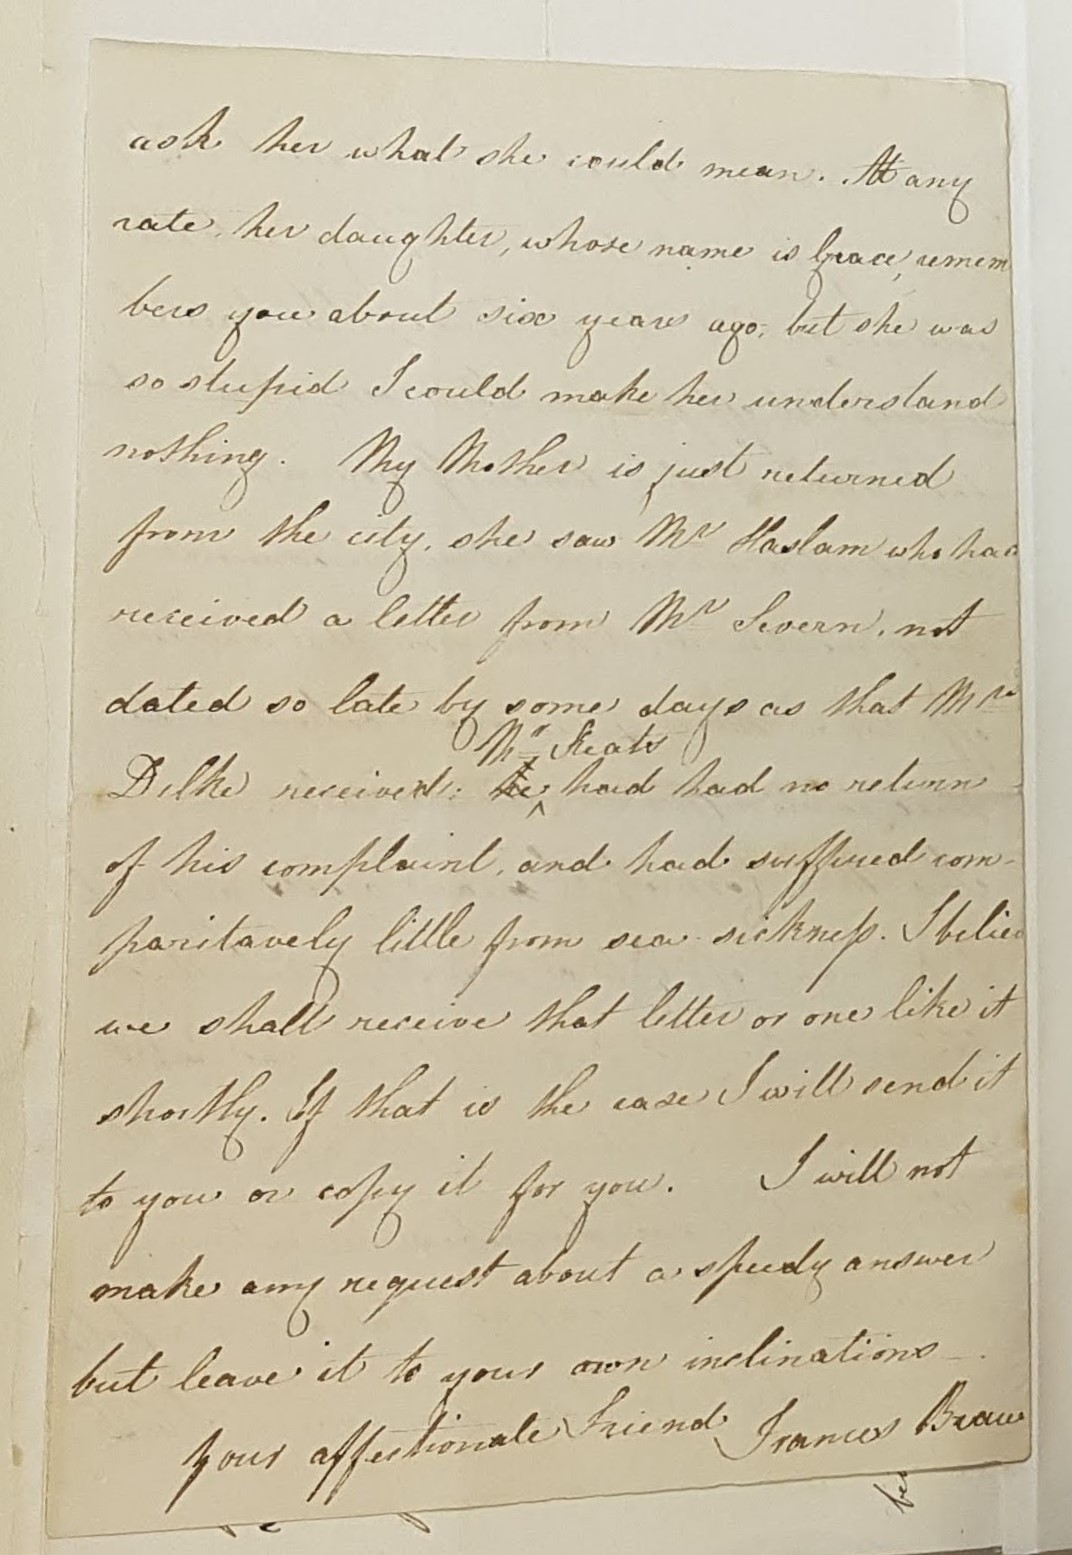 ask her what she could mean. At any
rate, her daughter, whose name is Grace, remem
bers you about six years ago, but she was
so stupid I could make her understand
nothing. My Mother is just returned
from the city, she saw Mr Haslam who had
received a letter from Mr Severn, not
dated so late by some days as that Mrs
Mr Keats
Dilke received; he had had no return
of his complaint, and had suffered com-
paritavely little from sea sickness. I believ
we shall receive that letter or one like it
shortly. If that is the case I will send it
to you or copy it for you. I will not
make any request about a speedy answer
but leave it to your own inclinations —.
Your affectionate Friend Frances Braw